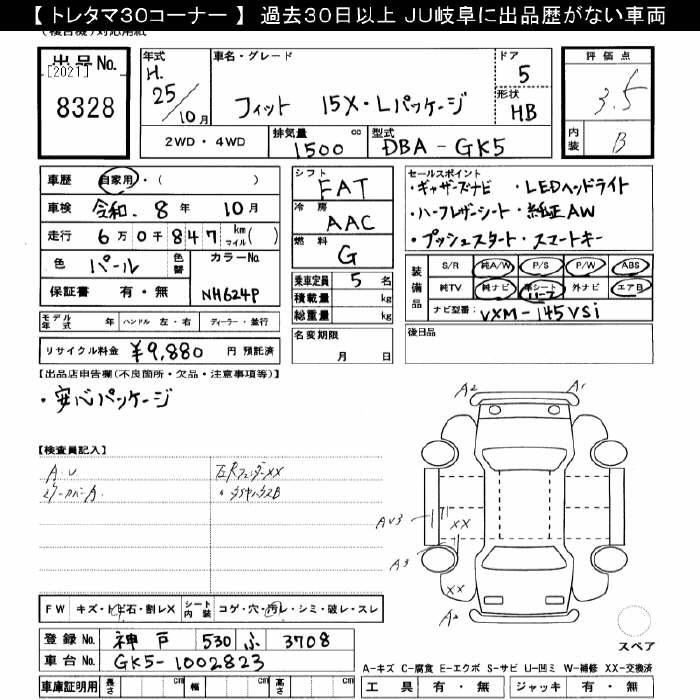 【 トレタマ30コーナー 】 過去30日以上 JU岐阜に出品歴がない車両
出品No. [2021] 8328
年式 H. 25/10月
車名・グレード フィット 15X・Lパッケージ
ドア 5
形状 HB
評価点 3.5
内装 B
2WD・4WD 排気量 1500 cc 型式 DBA-GK5
車歴 自家用・( )
車検 令和. 8年 10月
走行 6万0千847 km マイル( )
色 パール 色替 カラーNo. NH624P
保証書 有・無
モデル年式 年 ハンドル 左・右 ディーラー・並行
リサイクル料金 ¥9,880 円 預託済
シフト FAT
冷房 AAC
燃料 G
乗車定員 5 名
積載量 kg
総重量 kg
名変期限 月 日
セールスポイント
・ギャザーズナビ ・LEDヘッドライト
・ハーフレザーシート・純正AW
・プッシュスタート・スマートキー
装備品 S/R 純A/W P/S P/W ABS
純TV 純ナビ 革シート ハーフ 外ナビ エアB
ナビ型番: VXM-145VSi
後日品
【出品店申告欄(不良箇所・欠品・注意事項等)】
・安心パッケージ
【検査員記入】
A.U 左RフェンダーXX
A2 A1
AU3 XX
A3
XX
A2
FW キズ・トビ石・割レX シート内装 コゲ・穴・汚レ・シミ・破レ・スレ
登録No. 神戸 530 ふ 3708
車台No. GK5-1002823
車庫証明用 長さ cm 幅 cm 高さ cm
スペア
A-キズ C-腐食 E-エクボ S-サビ U-凹ミ W-補修 XX-交換済
工具 有・無 ジャッキ 有・無